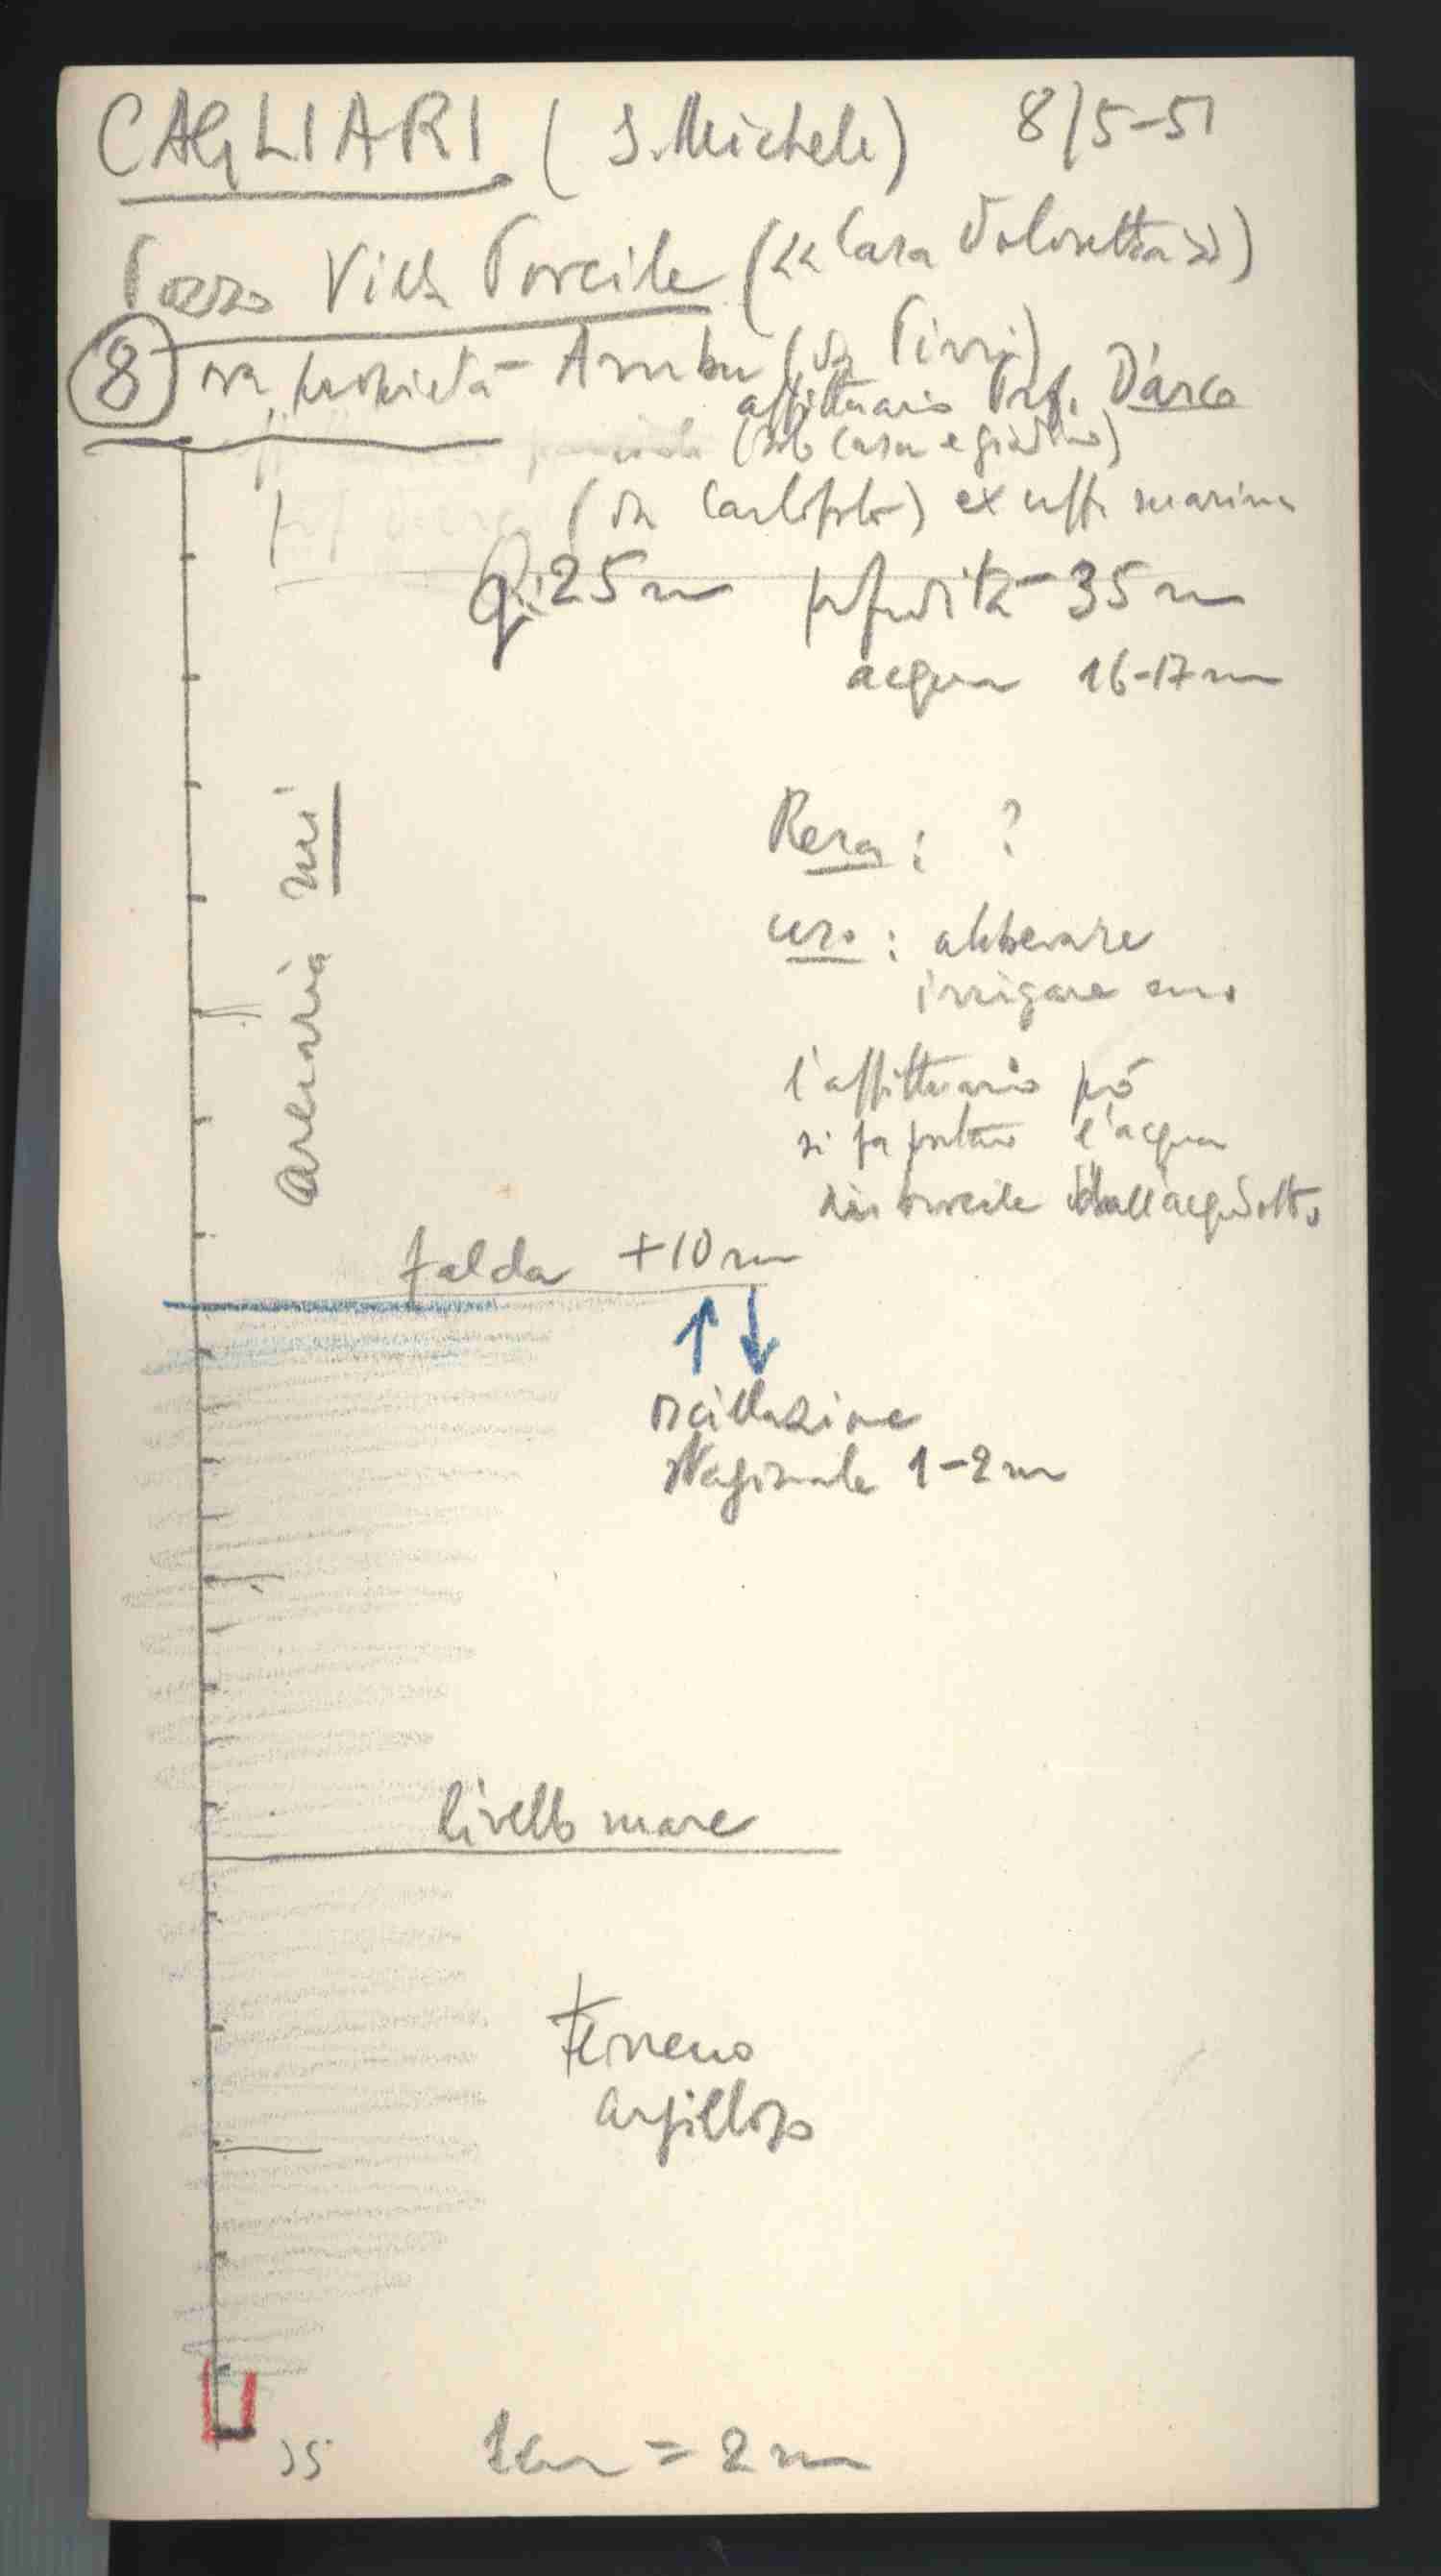 CAGLIARI (S. Michele) 8/5-51
Pozzo Villa Porcile (<<Casa Valosetta>>)
8 ora proprietà Arımbu (da Pirri)
affittuario Prof. D'arco
(solo casa e giardino)
(da Carloforte) ex uff. marina
Q: 25 m profondità 35 m
acqua 16-17 m
arenaria mi
Resa : ?
uso : abbeverare
irrigare
l'affittuario però
si fa portare l'acqua
dall'acquedotto
falda +10 m
oscillazione
stagionale 1-2 m
livello mare
terreno
argilloso
35
1 cm = 2 m